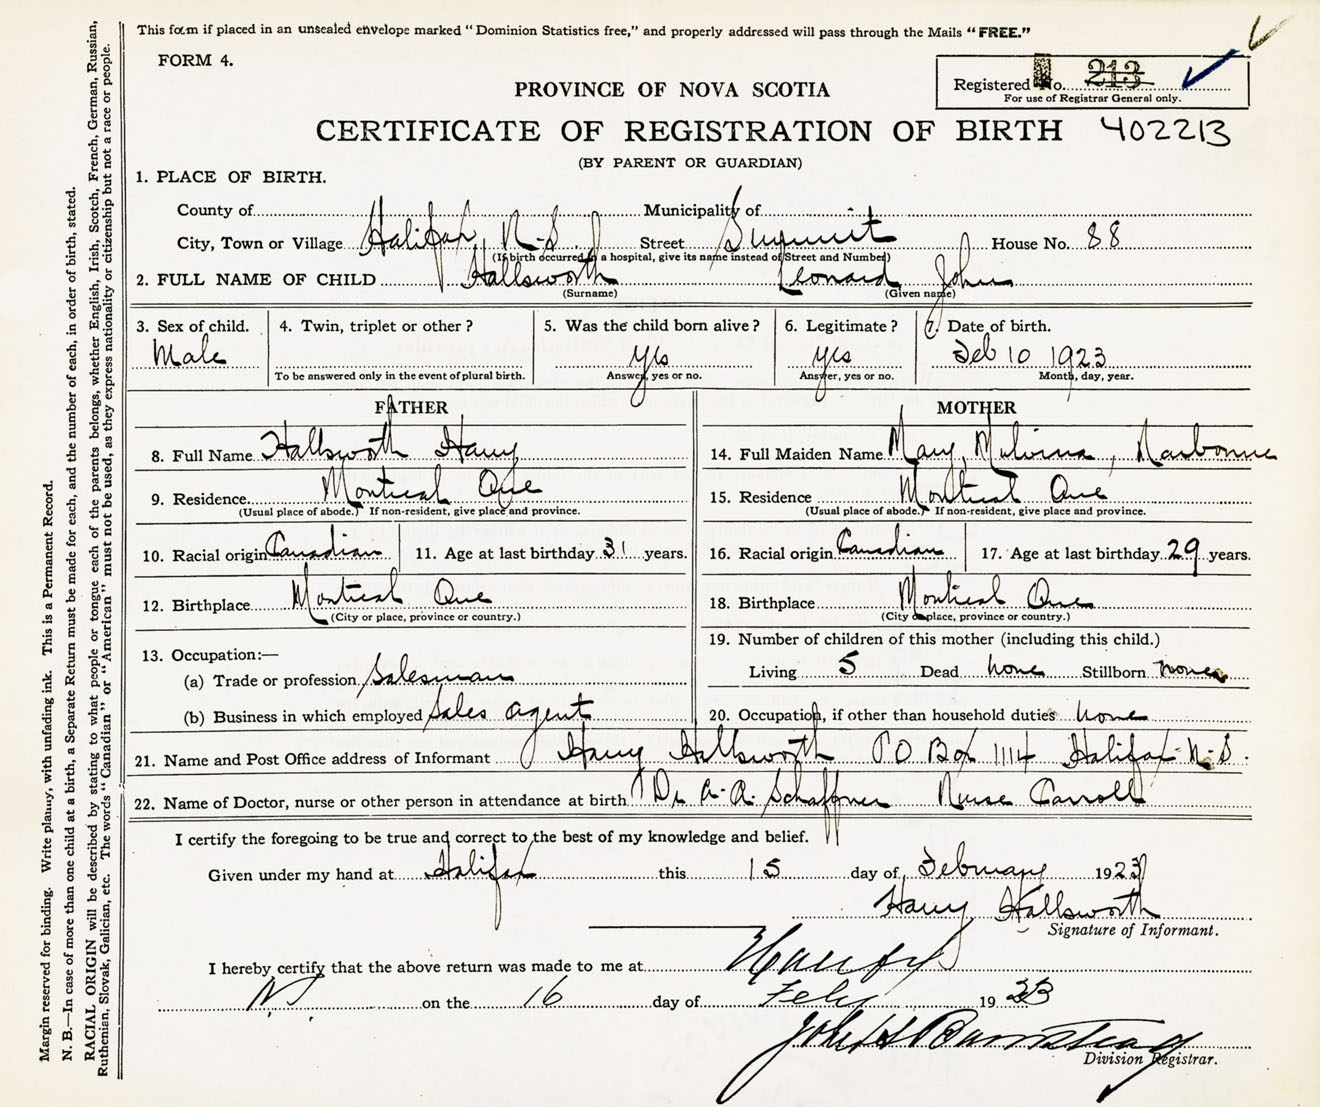 This form if placed in an unsealed envelope marked "Dominion Statistics free," and properly addressed will pass through the Mails "FREE."
FORM 4.
Registered No. 213
For use of Registrar General only.
PROVINCE OF NOVA SCOTIA
CERTIFICATE OF REGISTRATION OF BIRTH 402213
(BY PARENT OR GUARDIAN)
1. PLACE OF BIRTH.
County of Municipality of
City, Town or Village Halifax, N.S. Street Summit House No. 88
(If birth occurred in a hospital, give its name instead of Street and Number)
2. FULL NAME OF CHILD Hallsworth Leonard John
(Surname) (Given name)
3. Sex of child. Male
4. Twin, triplet or other?
To be answered only in the event of plural birth.
5. Was the child born alive? yes
Answer, yes or no.
6. Legitimate? yes
Answer, yes or no.
7. Date of birth. Feb 10 1923
Month, day, year.
FATHER
8. Full Name Hallsworth Harry
9. Residence Montreal Que
(Usual place of abode.) If non-resident, give place and province.
10. Racial origin Canadian 11. Age at last birthday 31 years.
12. Birthplace Montreal Que
(City or place, province or country.)
13. Occupation:—
(a) Trade or profession Salesman
(b) Business in which employed Sales agent
MOTHER
14. Full Maiden Name Mary, Malvina, Narbonne
15. Residence Montreal Que
(Usual place of abode.) If non-resident, give place and province.
16. Racial origin Canadian 17. Age at last birthday 29 years.
18. Birthplace Montreal Que
(City or place, province or country.)
19. Number of children of this mother (including this child.)
Living 5 Dead none Stillborn none
20. Occupation, if other than household duties none
21. Name and Post Office address of Informant Harry Hallsworth P O Box 1114 Halifax N.S.
22. Name of Doctor, nurse or other person in attendance at birth Dr A. R. Schaffner Nurse Carroll
I certify the foregoing to be true and correct to the best of my knowledge and belief.
Given under my hand at Halifax this 15 day of February 1923
Harry Hallsworth
Signature of Informant.
I hereby certify that the above return was made to me at Halifax
NS on the 16 day of Feby 1923
Division Registrar.
Margin reserved for binding. Write plainly, with unfading ink. This is a Permanent Record.
N. B.—In case of more than one child at a birth, a Separate Return must be made for each, and the number of each, in order of birth, stated.
RACIAL ORIGIN will be described by stating to what people or tongue each of the parents belongs, whether English, Irish, Scotch, French, German, Russian,
Ruthenian, Slovak, Galician, etc. The words "Canadian" or "American" must not be used, as they express nationality or citizenship but not a race or people.